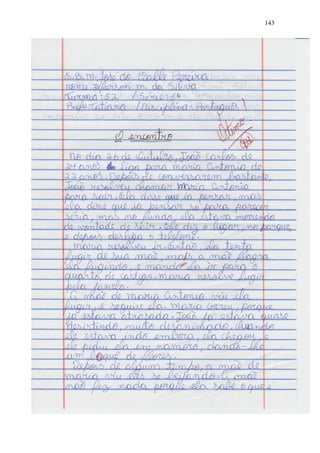 143
E.B.M. José do Valle Pereira
nome Jefferson m. da Silva
Turma: 52 / Série: 5ª
Profe Tatiana / Disciplina: Português
Ótimo
O encontro
No dia 20 de Outubro, João Carlos de
24 anos liga para maria Antonia de
22 anos. Depois de conversarem bastante,
João resolveu chamar Maria Antonia
para sair. Ela disse que ia pensar, mas
ela disse que ia pensar só para parecer
séria, mas no fundo, ela estava morrendo
de vontade de sair. Ele diz o lugar, no parque,
e depois desliga o telefone.
maria resolveu ir. Então, ela tenta
fugir de sua mãe, mais, a mãe flagra
ela fugindo, e manda ela ir para o
quarto, de castigo. maria resolve fugir
pela janela.
A mãe de maria Antonia viu ela
fugir, e seguiu ela. Maria correu, porque
já estava atrazada. João já estava quase
desistindo, muito desanimado. Quando
ele estava indo embora, ela chegou e
ele pediu ela em namoro, dando-lhe
um buquê de flores.
Depois de algum tempo, a mãe de
maria viu eles se beijando. A mãe
não fez nada porque ela sabe o que é